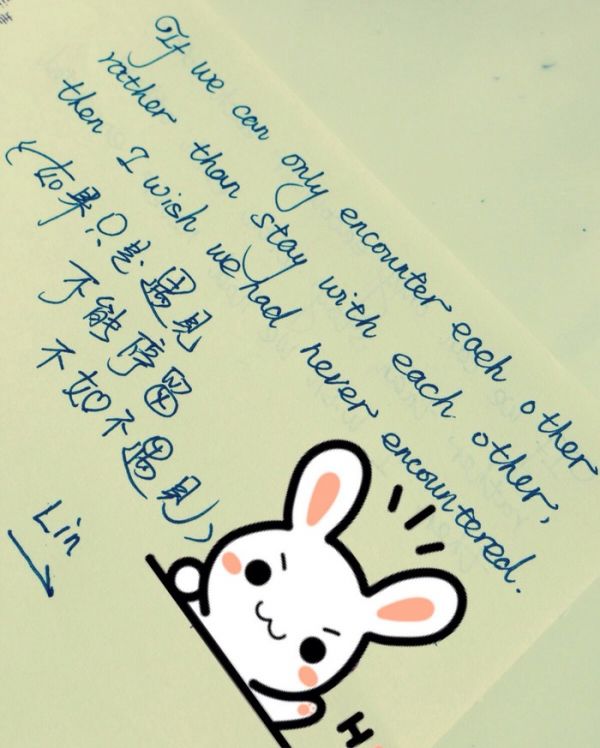 If we can only encounter each other
rather than stay with each other,
then I wish we had never encountered.
(如果只是遇见
不能停留
不如不遇见)
Lin
H